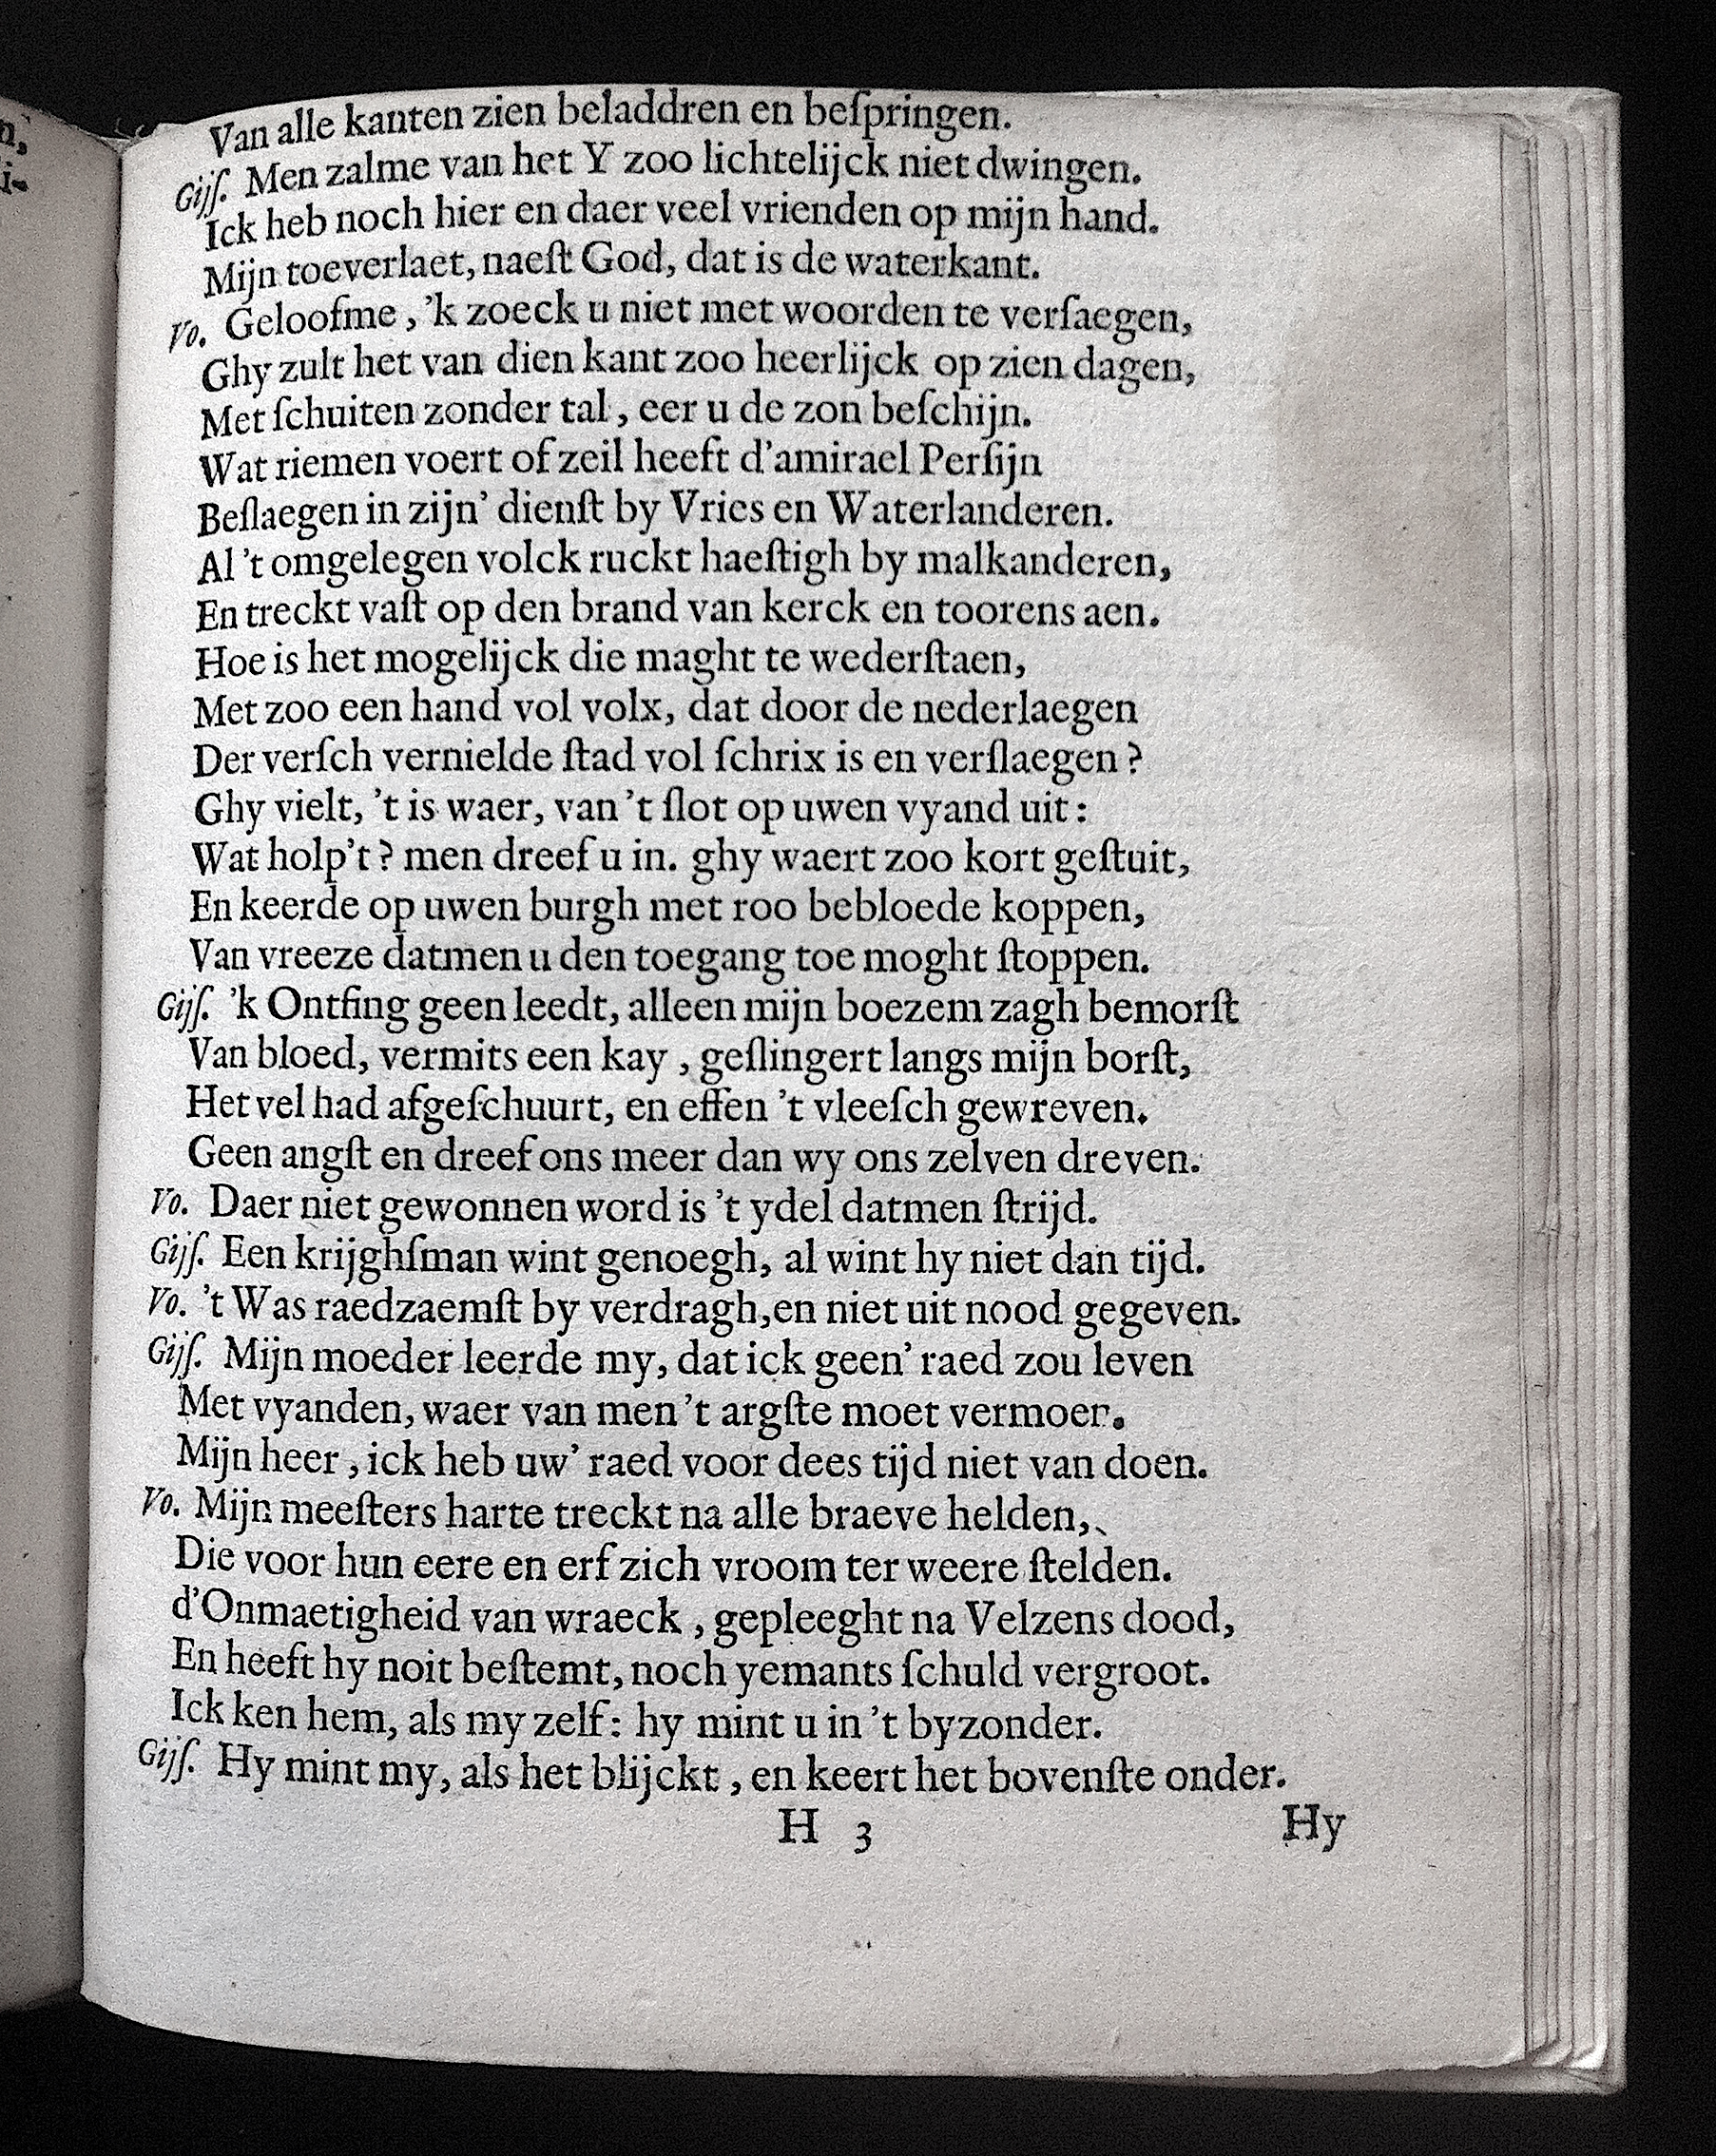 n,
i-
Van alle kanten zien beladdren en beſpringen.
Gijſ. Men zalme van het Y zoo lichtelijck niet dwingen.
Ick heb noch hier en daer veel vrienden op mijn hand.
Mijn toeverlaet, naeſt God, dat is de waterkant.
Vo. Geloofme, 'k zoeck u niet met woorden te verſaegen,
Ghy zult het van dien kant zoo heerlijck op zien dagen,
Met ſchuiten zonder tal, eer u de zon beſchijn.
Wat riemen voert of zeil heeft d'amirael Perſijn
Beſlaegen in zijn' dienſt by Vries en Waterlanderen.
Al 't omgelegen volck ruckt haeſtigh by malkanderen,
En treckt vaſt op den brand van kerck en toorens aen.
Hoe is het mogelijck die maght te wederſtaen,
Met zoo een hand vol volx, dat door de nederlaegen
Der verſch vernielde ſtad vol ſchrix is en verſlaegen?
Ghy vielt, 't is waer, van 't ſlot op uwen vyand uit:
Wat holp't? men dreef u in. ghy waert zoo kort geſtuit,
En keerde op uwen burgh met roo bebloede koppen,
Van vreeze datmen u den toegang toe moght ſtoppen.
Gijſ. 'k Ontfing geen leedt, alleen mijn boezem zagh bemorſt
Van bloed, vermits een kay, geſlingert langs mijn borſt,
Het vel had afgeſchuurt, en effen 't vleeſch gewreven.
Geen angſt en dreef ons meer dan wy ons zelven dreven.
Vo. Daer niet gewonnen word is 't ydel datmen ſtrijd.
Gijſ. Een krijghſman wint genoegh, al wint hy niet dan tijd.
Vo. 't Was raedzaemſt by verdragh, en niet uit nood gegeven.
Gijſ. Mijn moeder leerde my, dat ick geen' raed zou leven
Met vyanden, waer van men 't argſte moet vermoen.
Mijn heer, ick heb uw' raed voor dees tijd niet van doen.
Vo. Mijn meeſters harte treckt na alle braeve helden,
Die voor hun eere en erf zich vroom ter weere ſtelden.
d'Onmaetigheid van wraeck, gepleeght na Velzens dood,
En heeft hy noit beſtemt, noch yemants ſchuld vergroot.
Ick ken hem, als my zelf: hy mint u in 't byzonder.
Gijſ. Hy mint my, als het blijckt, en keert het bovenſte onder.
H 3 Hy